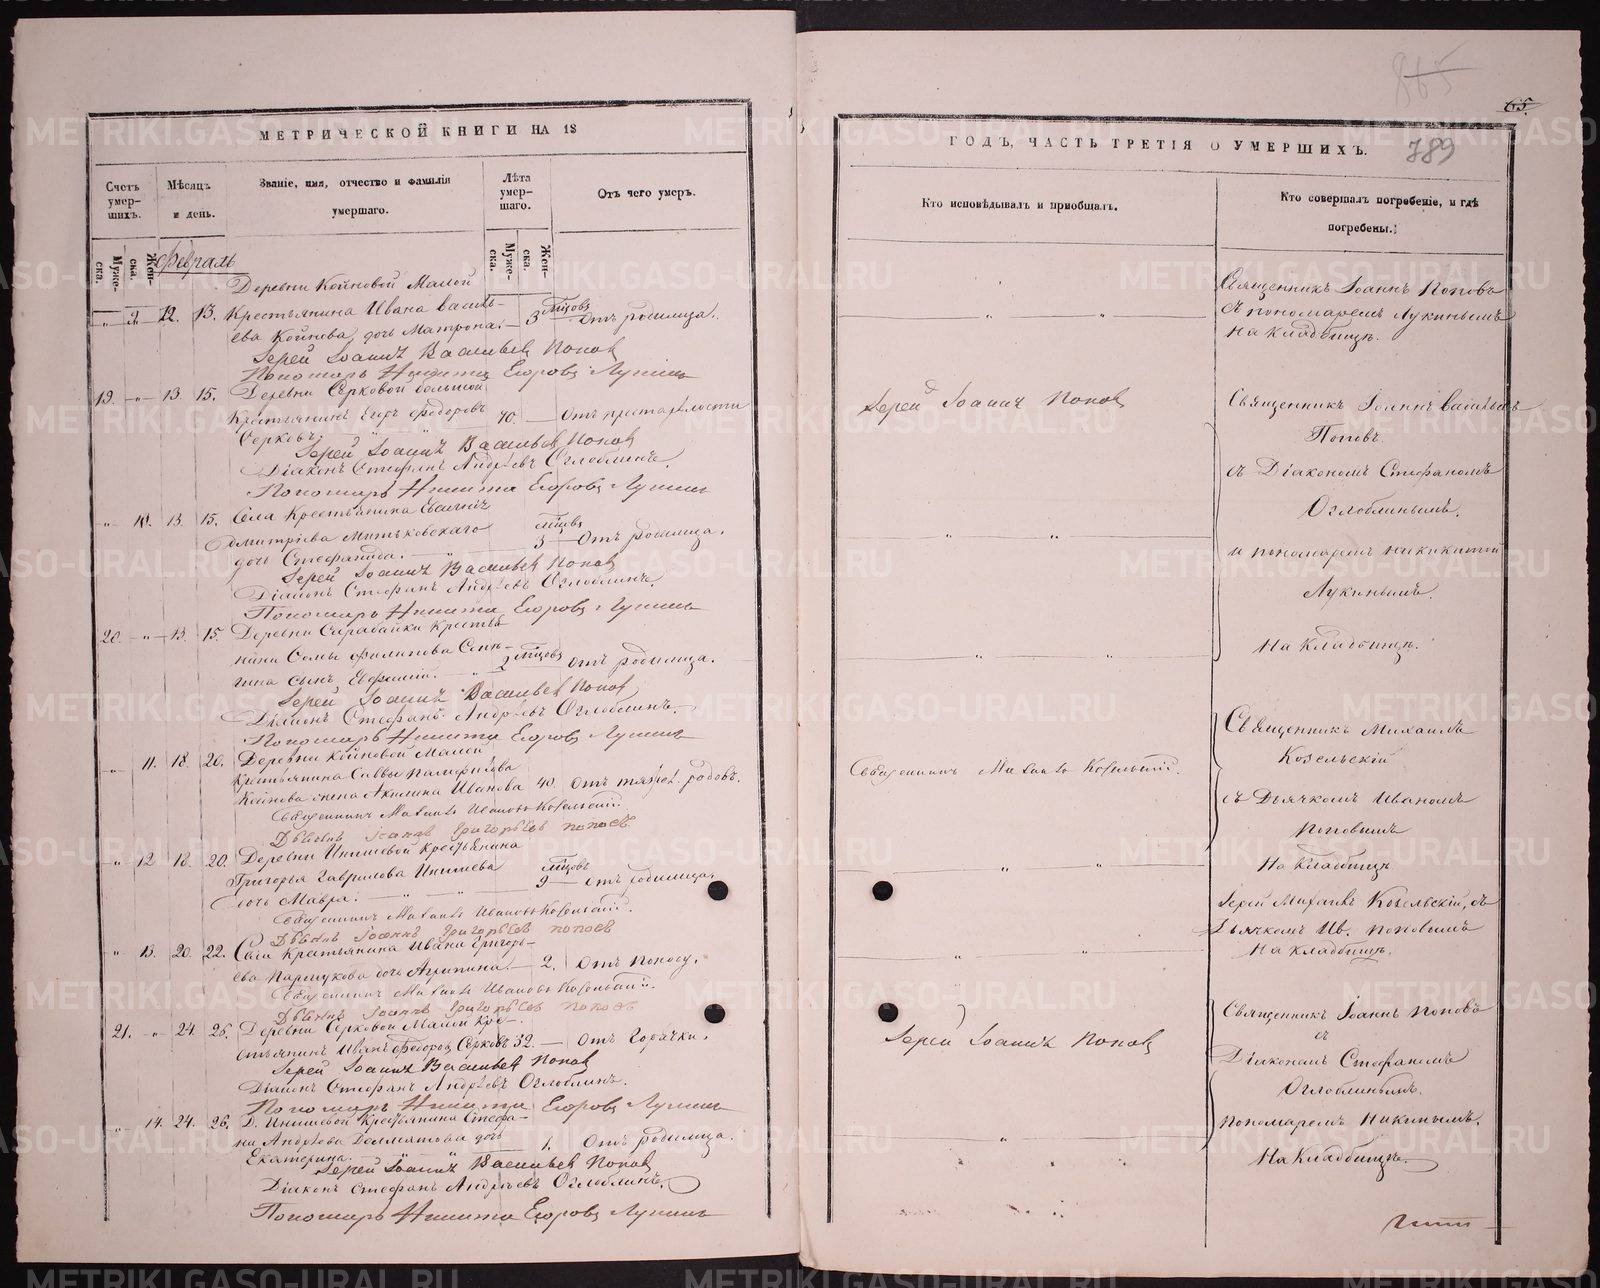 МЕТРИЧЕСКОЙ КНИГИ НА 18
Счетъ умер-шихъ.
Мѣсяцъ и день.
Званіе, имя, отчество и фамилія умершаго.
Лѣта умер-шаго.
Отъ чего умеръ.
Муже-ска.
Жен-ска.
Муже-ска.
Жен-ска.
Февраль
Деревни Койновой Малой
" 9. 12. 13. Крестьянина Ивана Василь-
ева Койнова дочь Матрона. — 3 мѣсцовъ Отъ родимца.
Іерей Іоаннъ Васильевъ Попов
Пономарь Никита Егоровъ Лукинъ
19. " 13. 15. Деревни Серковой большой
Крестьянинъ Егоръ Федоровъ 70. — Отъ престарѣлости
Серковъ.
Іерей Іоаннъ Васильевъ Попов
Діаконъ Стефанъ Андрѣевъ Оглоблинъ.
Пономарь Никита Егоровъ Лукинъ
" 10. 13. 15. Села Крестьянина
Дмитріева Митьковскаго
дочь Стефанида. — " 3 мѣсцовъ — Отъ родимца.
Іерей Іоаннъ Васильевъ Попов
Діаконъ Стефанъ Андрѣевъ Оглоблинъ.
Пономарь Никита Егоровъ Лукинъ
20. " 13. 15. Деревни Сарабайки Кресть-
нина Филипова
гина сынъ — 2 мѣсцовъ отъ родимца.
Іерей Іоаннъ Васильевъ Попов
Діаконъ Стефанъ Андрѣевъ Оглоблинъ.
Пономарь Никита Егоровъ Лукинъ
" 11. 18. 20. Деревни Койновой Малой
Крестьянина Саввы
Койнова жена Акилина Иванова 40. Отъ родовъ.
Священникъ Михаилъ Ивановъ Козельскій.
Дьячекъ Іоаннъ Григорьевъ Попов
" 12 18. 20. Деревни Инишевой Крестьянина
Григорья Гаврилова Инишева
дочь Мавра. — " 9 мѣсцовъ — отъ родимца.
Священникъ Михаилъ Ивановъ Козельскій.
Дьячекъ Іоаннъ Григорьевъ Попов
" 13. 20. 22. Села Крестьянина Ивана Григорь-
ева Паршукова дочь Агрипина. — 2. Отъ поносу.
Священникъ Михаилъ Ивановъ Козельскій.
Дьячекъ Іоаннъ Григорьевъ Попов
21. " 24. 26. Деревни Серковой Малой Кре-
стьянинъ Иванъ Федоровъ Серковъ 32. — Отъ Горячки.
Іерей Іоаннъ Васильевъ Попов
Діаконъ Стефанъ Андрѣевъ Оглоблинъ.
Пономарь Никита Егоровъ Лукинъ
" 14. 24. 26. Д. Инишевой Крестьянина Стефа-
на Андрѣева дочь
Екатерина. 1. Отъ родимца.
Іерей Іоаннъ Васильевъ Попов
Діаконъ Стефанъ Андрѣевъ Оглоблинъ.
Пономарь Никита Егоровъ Лукинъ
865
65.
789
ГОДЪ, ЧАСТЬ ТРЕТІЯ О УМЕРШИХЪ.
Кто исповѣдывалъ и пріобщалъ.
Кто совершалъ погребеніе, и гдѣ погребены.
Священникъ Іоаннъ Поповъ
съ пономаремъ Лукинымъ
на кладбищѣ.
Іерей Іоаннъ Попов
Священникъ Іоаннъ Васильевъ
Поповъ.
съ Діакономъ Стефаномъ
Оглоблинымъ.
и пономаремъ
Лукинымъ.
На Кладбищѣ.
Священникъ Михаилъ Козельскій.
Священникъ Михаилъ
Козельскій
съ Дьячкомъ Иваномъ
Поповымъ
На Кладбищѣ
Іерей Михаилъ Козельскій, съ
Дьячкомъ Ив. Поповымъ
На кладбищѣ.
Іерей Іоаннъ Попов
Священникъ Іоаннъ Поповъ
съ
Діакономъ Стефаномъ
Оглоблинымъ.
Пономаремъ
На Кладбищѣ.
METRIKI.GASO-URAL.RU